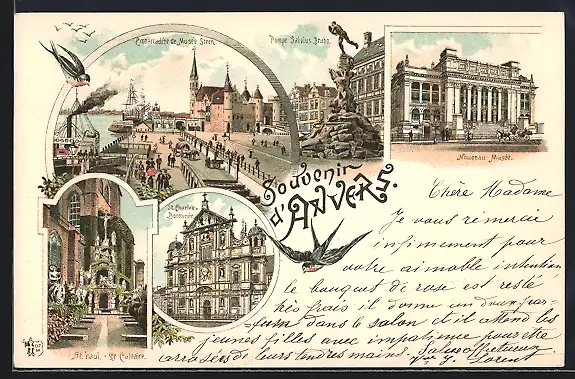 Embarcadère de Musée Steen.
Pompe Salvius Brabo.
Nouveau Musée.
Souvenir
d'ANVERS.
St. Charles
Borromée.
St. Paul. - Le Calvaire.
Chère Madame
Je vous remercie
infiniment pour
votre aimable intention
le bouquet de rose est resté
très frais il donne un doux par-
fum dans le salon et il attend les
jeunes filles avec impatience pour être
carressées de leurs tendres mains. Salus affectueux
J. Lorent